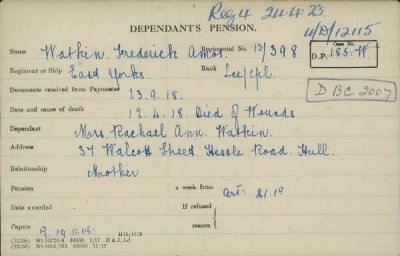 Reg 4 24.4.23.
4/D/12115
DEPENDANT'S PENSION.
Name Watkin. Frederick Amos. Regimental No. 13/398
Case No.
D.P. 185.W
Regiment or Ship East Yorks. Rank Lce/Cpl.
Documents received from Paymaster 23.9.18.
D BC 2007
Date and cause of death 12.4.18. Died of Wounds
Dependant Mrs. Rachael Ann. Watkin.
Address 37 Walcott Street. Hessle Road. Hull.
Relationship Mother
Pension a week from Art: 21.19
Date awarded If refused
Papers 19.11.19. reason